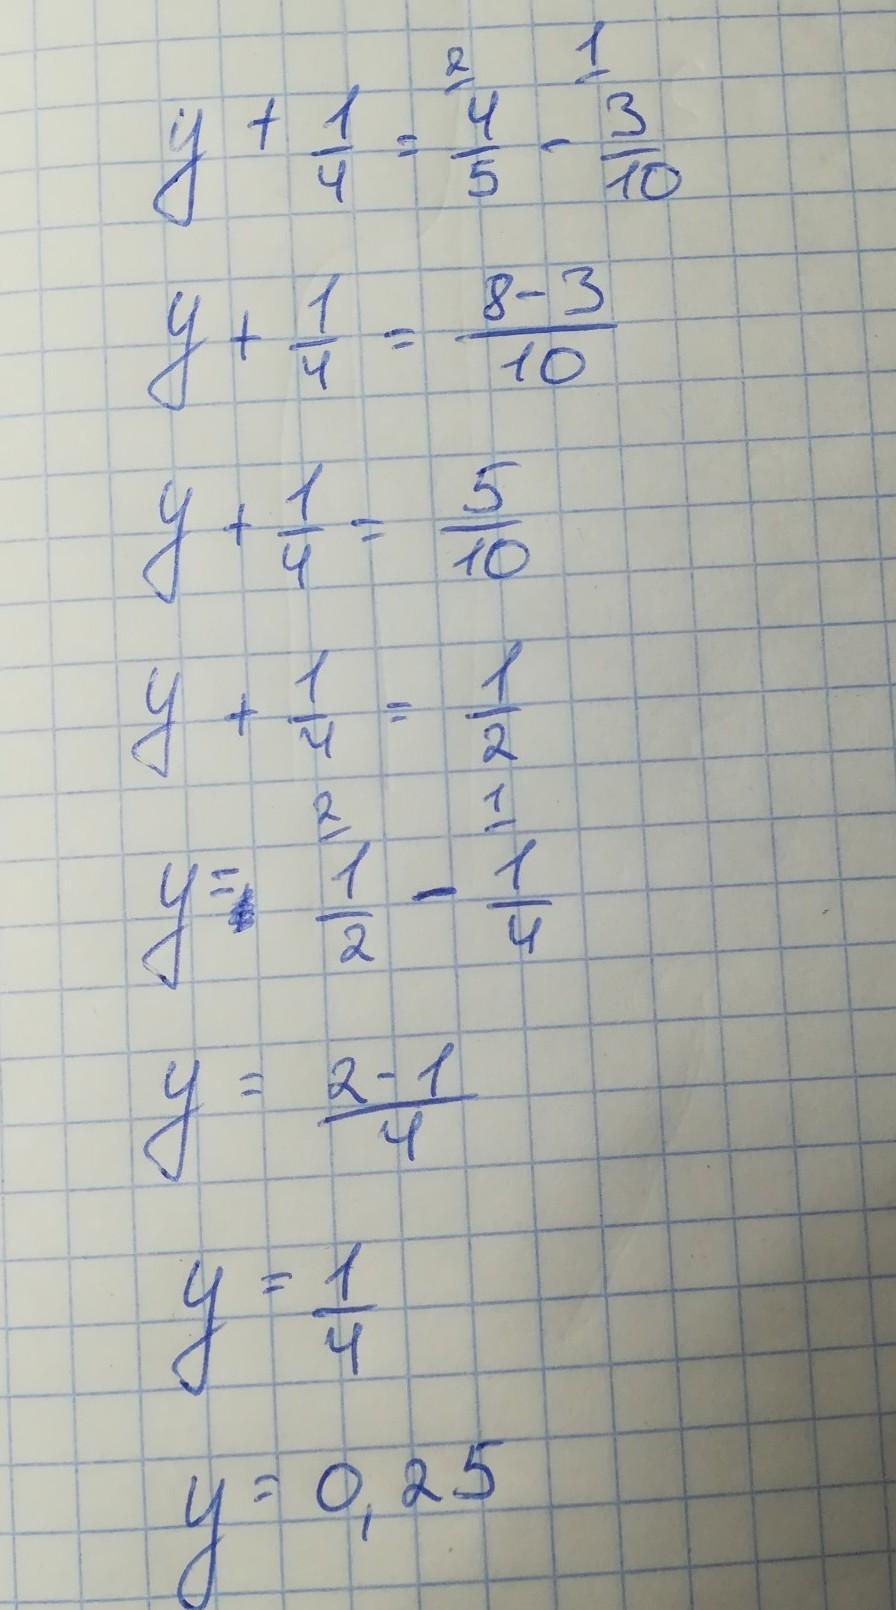 2 1
y + 1/4 = 4/5 - 3/10
y + 1/4 = 8-3/10
y + 1/4 = 5/10
y + 1/4 = 1/2
2 1
y = 1/2 - 1/4
y = 2-1/4
y = 1/4
y = 0,25